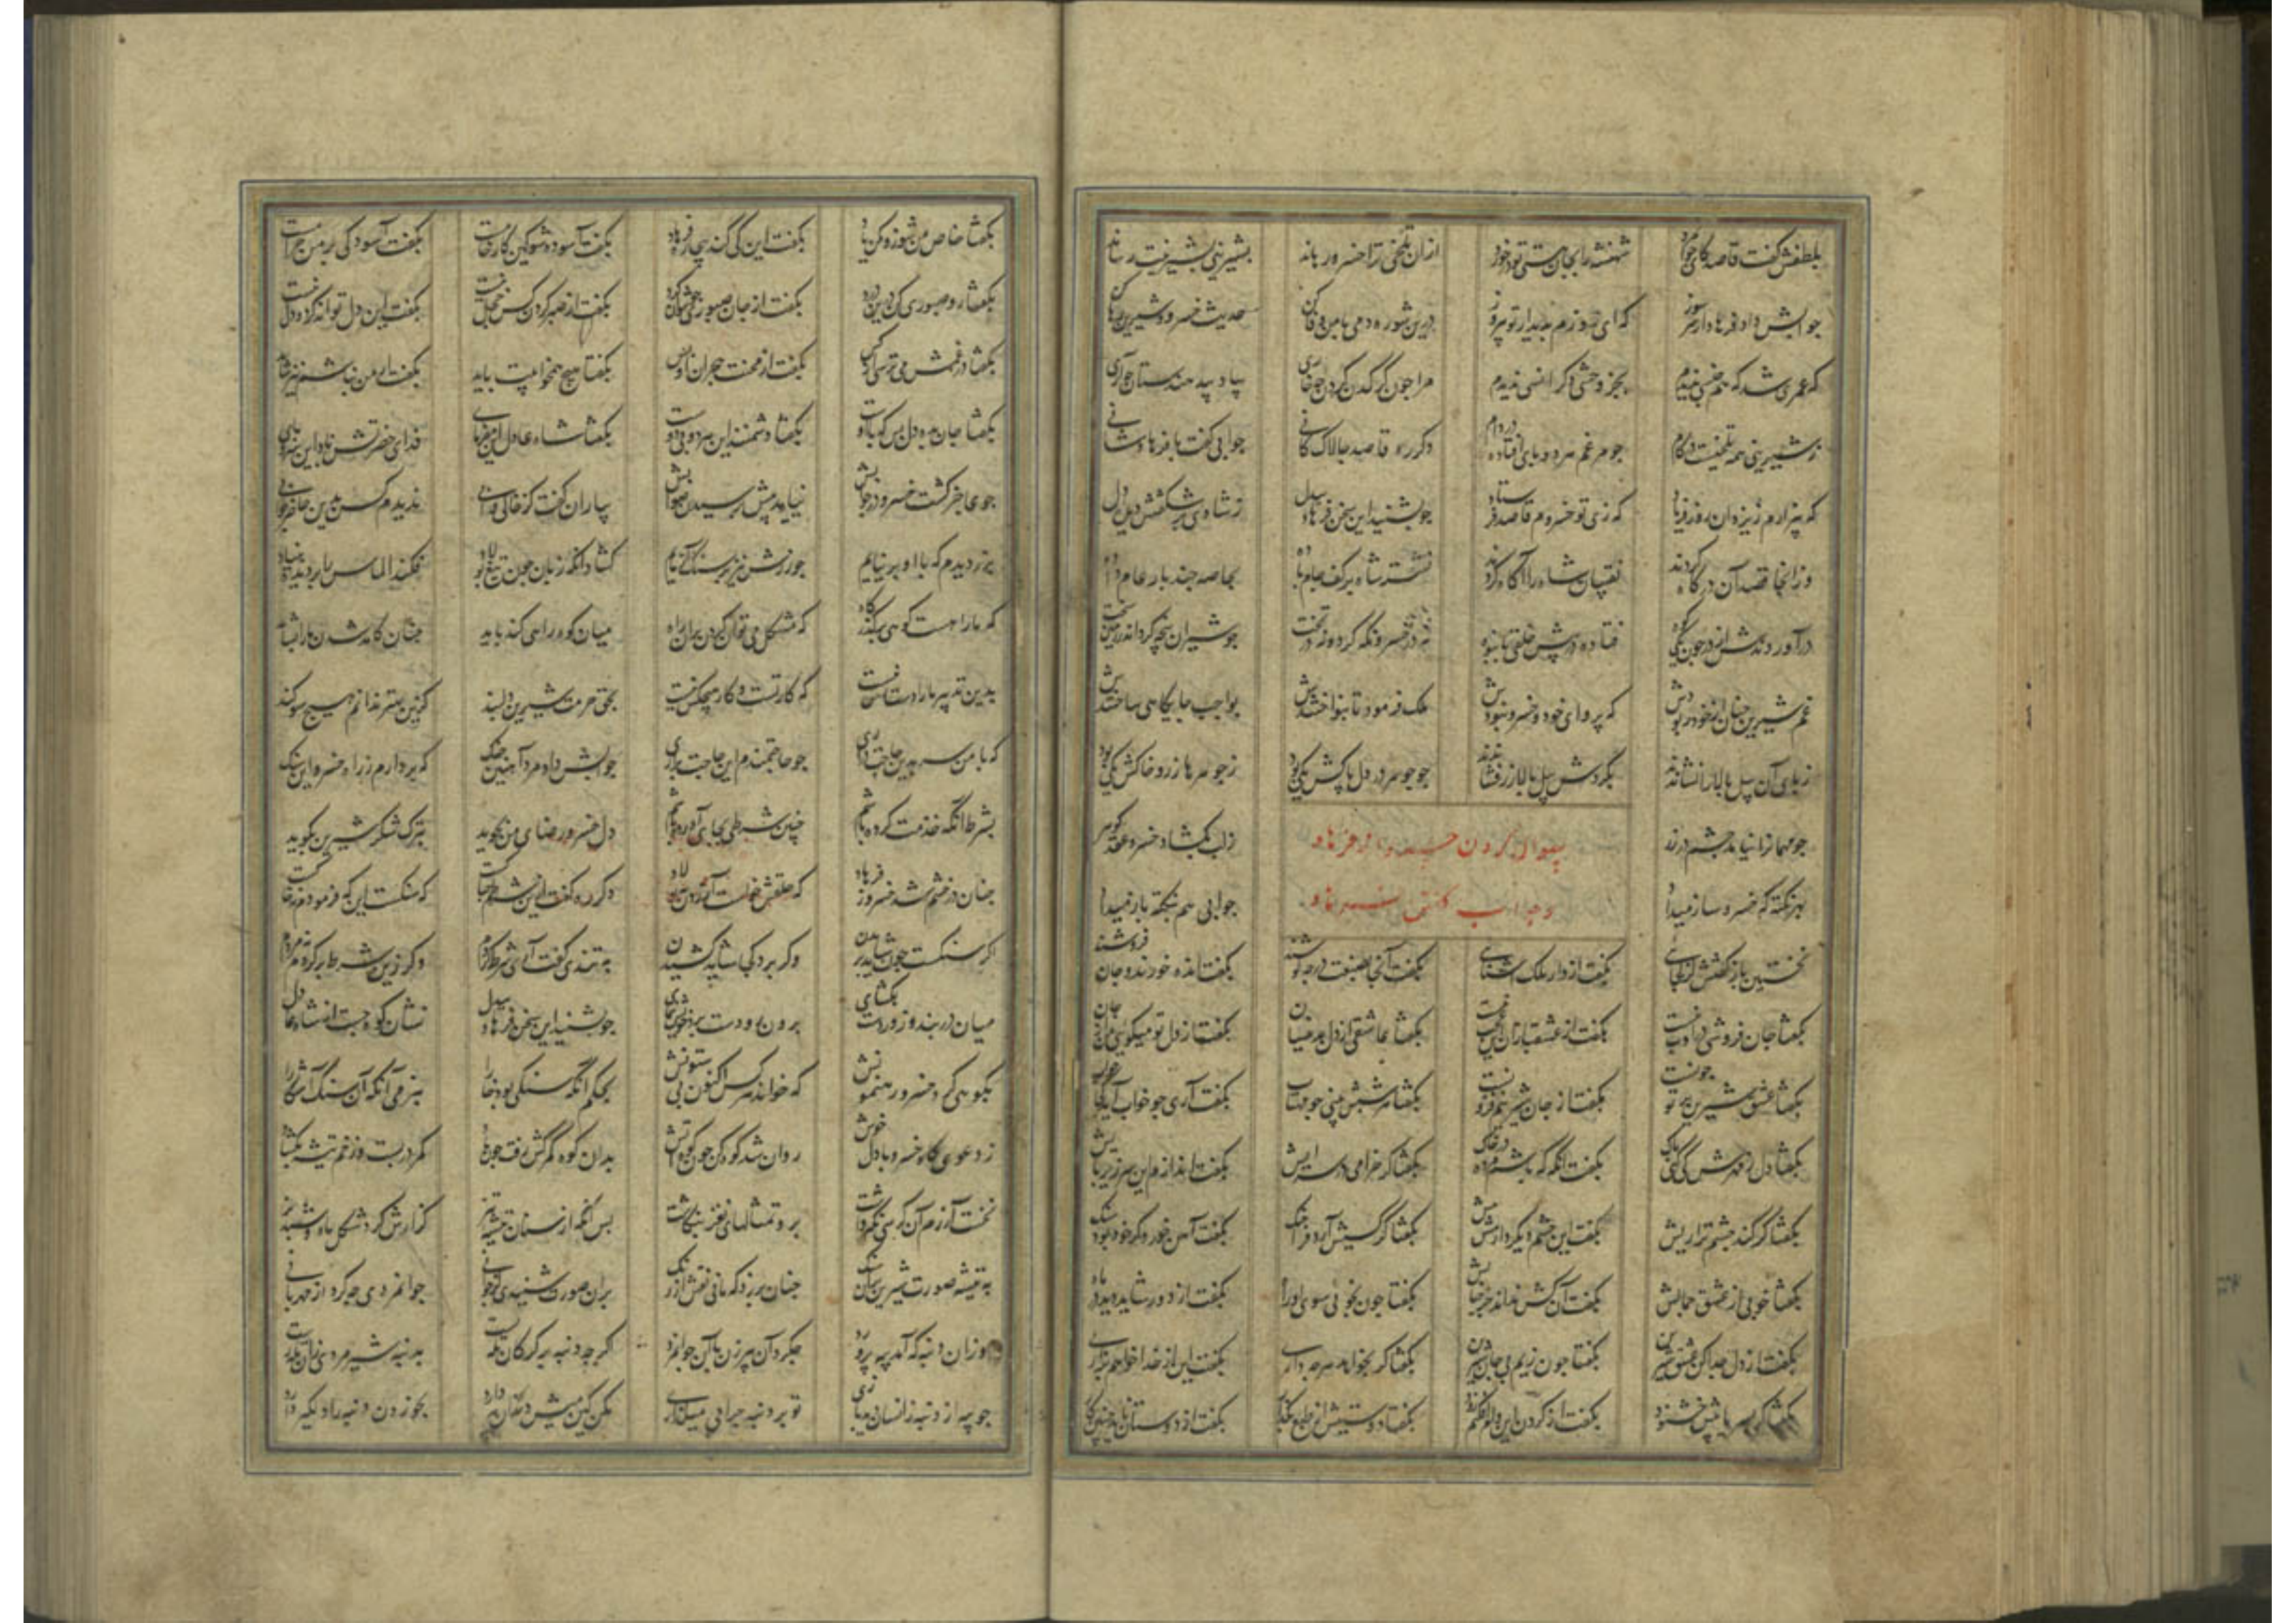 بلطفش گفت قاصد کای جوانمرد شهنشه را بجان هستی تو درخور ازان تلخی ترا خسرو رهاند بشیرینی بشیرینت رساند
جوابش داد فرهاد که ای روزم بدیدار تو پیروز درین شوره دمی با من وفا کن حدیث خسرو و شیرین رها کن
که عمری شد که هم جنسی ندیدم بجز وحشی دکر انسی ندیدم مرا چون کرکدن کردن چه خاری بیاد پیل هندستان چه آری
ز شیرینی همه تلخیست در کام چو مرغم هر دو پای افتاده در دام دکر ره قاصد چالاک جوابی گفت با فرهاد
که بیزارم ز یزدان روز فریاد که زی تو خسروم قاصد فرستاد چو بشنید این سخن فرهاد بیدل
وز آنجا قصد آن درگاه کردند نقیبان شاه را آگاه کردند نشسته شاه بر کف جام باده بخاصه چند بار عام داده
درآوردندش از در چون یکی کوه فتاده در پیش خلقی بانبوه نه در خسرو نگه کرد و نه در تخت چو شیران پنجه کرد اندر زمین سخت
غم شیرین چنان از خود ربودش که پروای خود و خسرو نبودش ملک فرمود تا بنواختندش بواجب جایگاهی ساختندش
ز پای آن پیل بالا را نشاندند بگردش پیل بالا زر فشاندند چو گوهر در دل پاکش یکی بود ز جوهرها زر و خاکش یکی بود
چو مهمانرا نیامد چشم در زر ز لب بگشاد خسرو عقد گوهر
سوال کردن خسرو با فرهاد
و جواب گفتن فرهاد
بهر نکته که خسرو ساز میداد جوابی هم بنکته باز میداد
نخستین بار گفتش کز کجایی بگفت از دار ملک آشنایی بگفت آنجا بصنعت در چه کوشند بگفت انده خرند و جان فروشند
بگفتا جان فروشی در ادب نیست بگفت از عشقبازان این عجب نیست بگفتا عاشقی از دل بدینسان بگفت از دل تو میگویی من از جان
بگفتا عشق شیرین بر تو چونست بگفت از جان شیرینم فزونست بگفتا هر شبش بینی چو مهتاب بگفت آری چو خواب آید کجا خواب
بگفتا دل ز مهرش کی کنی پاک بگفت آنگه که باشم مرده در خاک بگفتا گر خرامی در سرایش بگفت اندازم این سر زیر پایش
بگفتا گر کند چشم ترا ریش بگفت این چشم دیگر دارمش پیش بگفتا گر کسیش آرد فراچنگ بگفت آهن خورد گر خود بود سنگ
بگفتا خوبی از عشق جمالش بگفت آن کس نداند جز خیالش بگفتا چون نجویی سوی او راه بگفت از دور شاید دید در ماه
بگفت از دل جدا کن عشق شیرین بگفتا چون زیم بی جان شیرین بگفتا گر بخواهد هر چه داری بگفت این از خدا خواهم بزاری
بگفتا گر بسر یابیش خشنود بگفت از گردن این وام افکنم زود بگفتا دوستیش از طبع بگذار بگفت از دوستان ناید چنین کار
بگفتا خاص من شو زو مکن یاد بگفت این کی کند بیچاره فرهاد بگفت آسوده شو کین کار خامست بگفت آسودگی بر من حرامست
بگفتا رو صبوری کن درین درد بگفت از جان صبوری چون توان کرد بگفت از صبر کردن کس خجل نیست بگفت این دل تواند کرد و دل نیست
بگفتا در غمش می ترسی از کس بگفت از محنت هجران او بس بگفتا هیچ همخوابیت باید بگفت ار من نباشم نیز شاید
بگفتا جان مده دل بس که با اوست بگفتا دشمنند این هر دو بی دوست
چو عاجز گشت خسرو در جوابش نیامد بیش پرسیدن صوابش بیاران گفت کز خاکی و آبی ندیدم کس بدین حاضر جوابی
بزر دیدم که با او بر نیایم چو زرش نیز بر سنگ آزمایم گشاد آنگه زبان چون تیغ پولاد فکند الماس را بر سنگ بنیاد
که ما را هست کوهی بر گذرگاه که مشکل می توان کردن بران راه میان کوه راهی کند باید چنان کامد شدن ما را بشاید
بدین تدبیر ما را دست کس نیست که کار تست و کار هیچکس نیست بحق حرمت شیرین دلبند کزین بهتر ندانم هیچ سوگند
که با من سر بدین حاجت در آری چو حاجتمندم این حاجت برآری جوابش داد مرد آهنین چنگ که بردارم ز راه خسرو این سنگ
بشرط آنکه خدمت کرده باشم چنین شرطی بجای آورده باشم دل خسرو رضای من بجوید بترک شکر شیرین بگوید
چنان در خشم شد خسرو ز فرهاد که حلقش خواست آزردن بپولاد دگر ره گفت ازین شرطم چه باکست که سنگست این که فرمودم نه خاکست
اگر سنگست چون شاید بریدن وگر برد کجا شاید کشیدن بتندی گفت آری شرط کردم وگر زین شرط برگردم نه مردم
میان در بند و زور دست بگشای برون رو دست برد خویش بنمای چو بشنید این سخن فرهاد بیدل نشان کوه جست از شاه عادل
بکوهی کرد خسرو رهنمونش که خواند هر کس اکنون بی ستونش بحکم آنکه سنگی بود خارا بنرمی آنکه آن سنگ آشکارا
ز دعوی گاه خسرو با دل خوش روان شد کوهکن چون کوه آتش بدان کوه کمرکش رفت چون باد کمر دربست و زخم تیشه بگشاد
نخست آزرم آن کرسی نگه داشت برو تمثالهای نغز بنگاشت پس آنگه از سنان تیشه تیز گزارش کرد شکل شاه و شبدیز
به تیشه صورت شیرین بران سنگ چنان بر زد که مانی نقش ارژنگ بران صورت شنیدی کز جوانی جوانمردی چه کرد از مهربانی
وزان دنبه که آمد پیه پرورد چه کرد آن پیرزن با آن جوانمرد اگر چه دنبه بر گرگان تله بست بدنبه شیرمردی زان تله رست
چو پیه از دنبه زانسان دید بازی تو بر دنبه چرا پی میگدازی مکن کین میش دندان پیر دارد بخوردن دنبه را دلگیر دارد